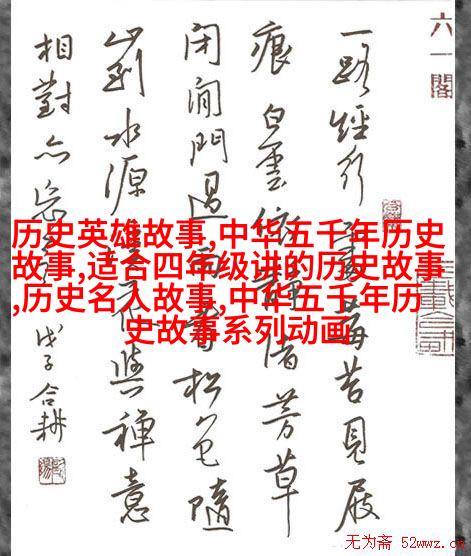 六一閣
一路經行處莓苔見屐
痕白雲依靜渚芳草
閉閑門過雨看松色隨
山到水源溪花與禪意
相對亦忘言
戊子合耕
历史英雄故事,中华五千年历史
故事,适合四年级讲的历史故事
,历史名人故事,中华五千年历
史故事系列动画
无为斋 52wwz.cn